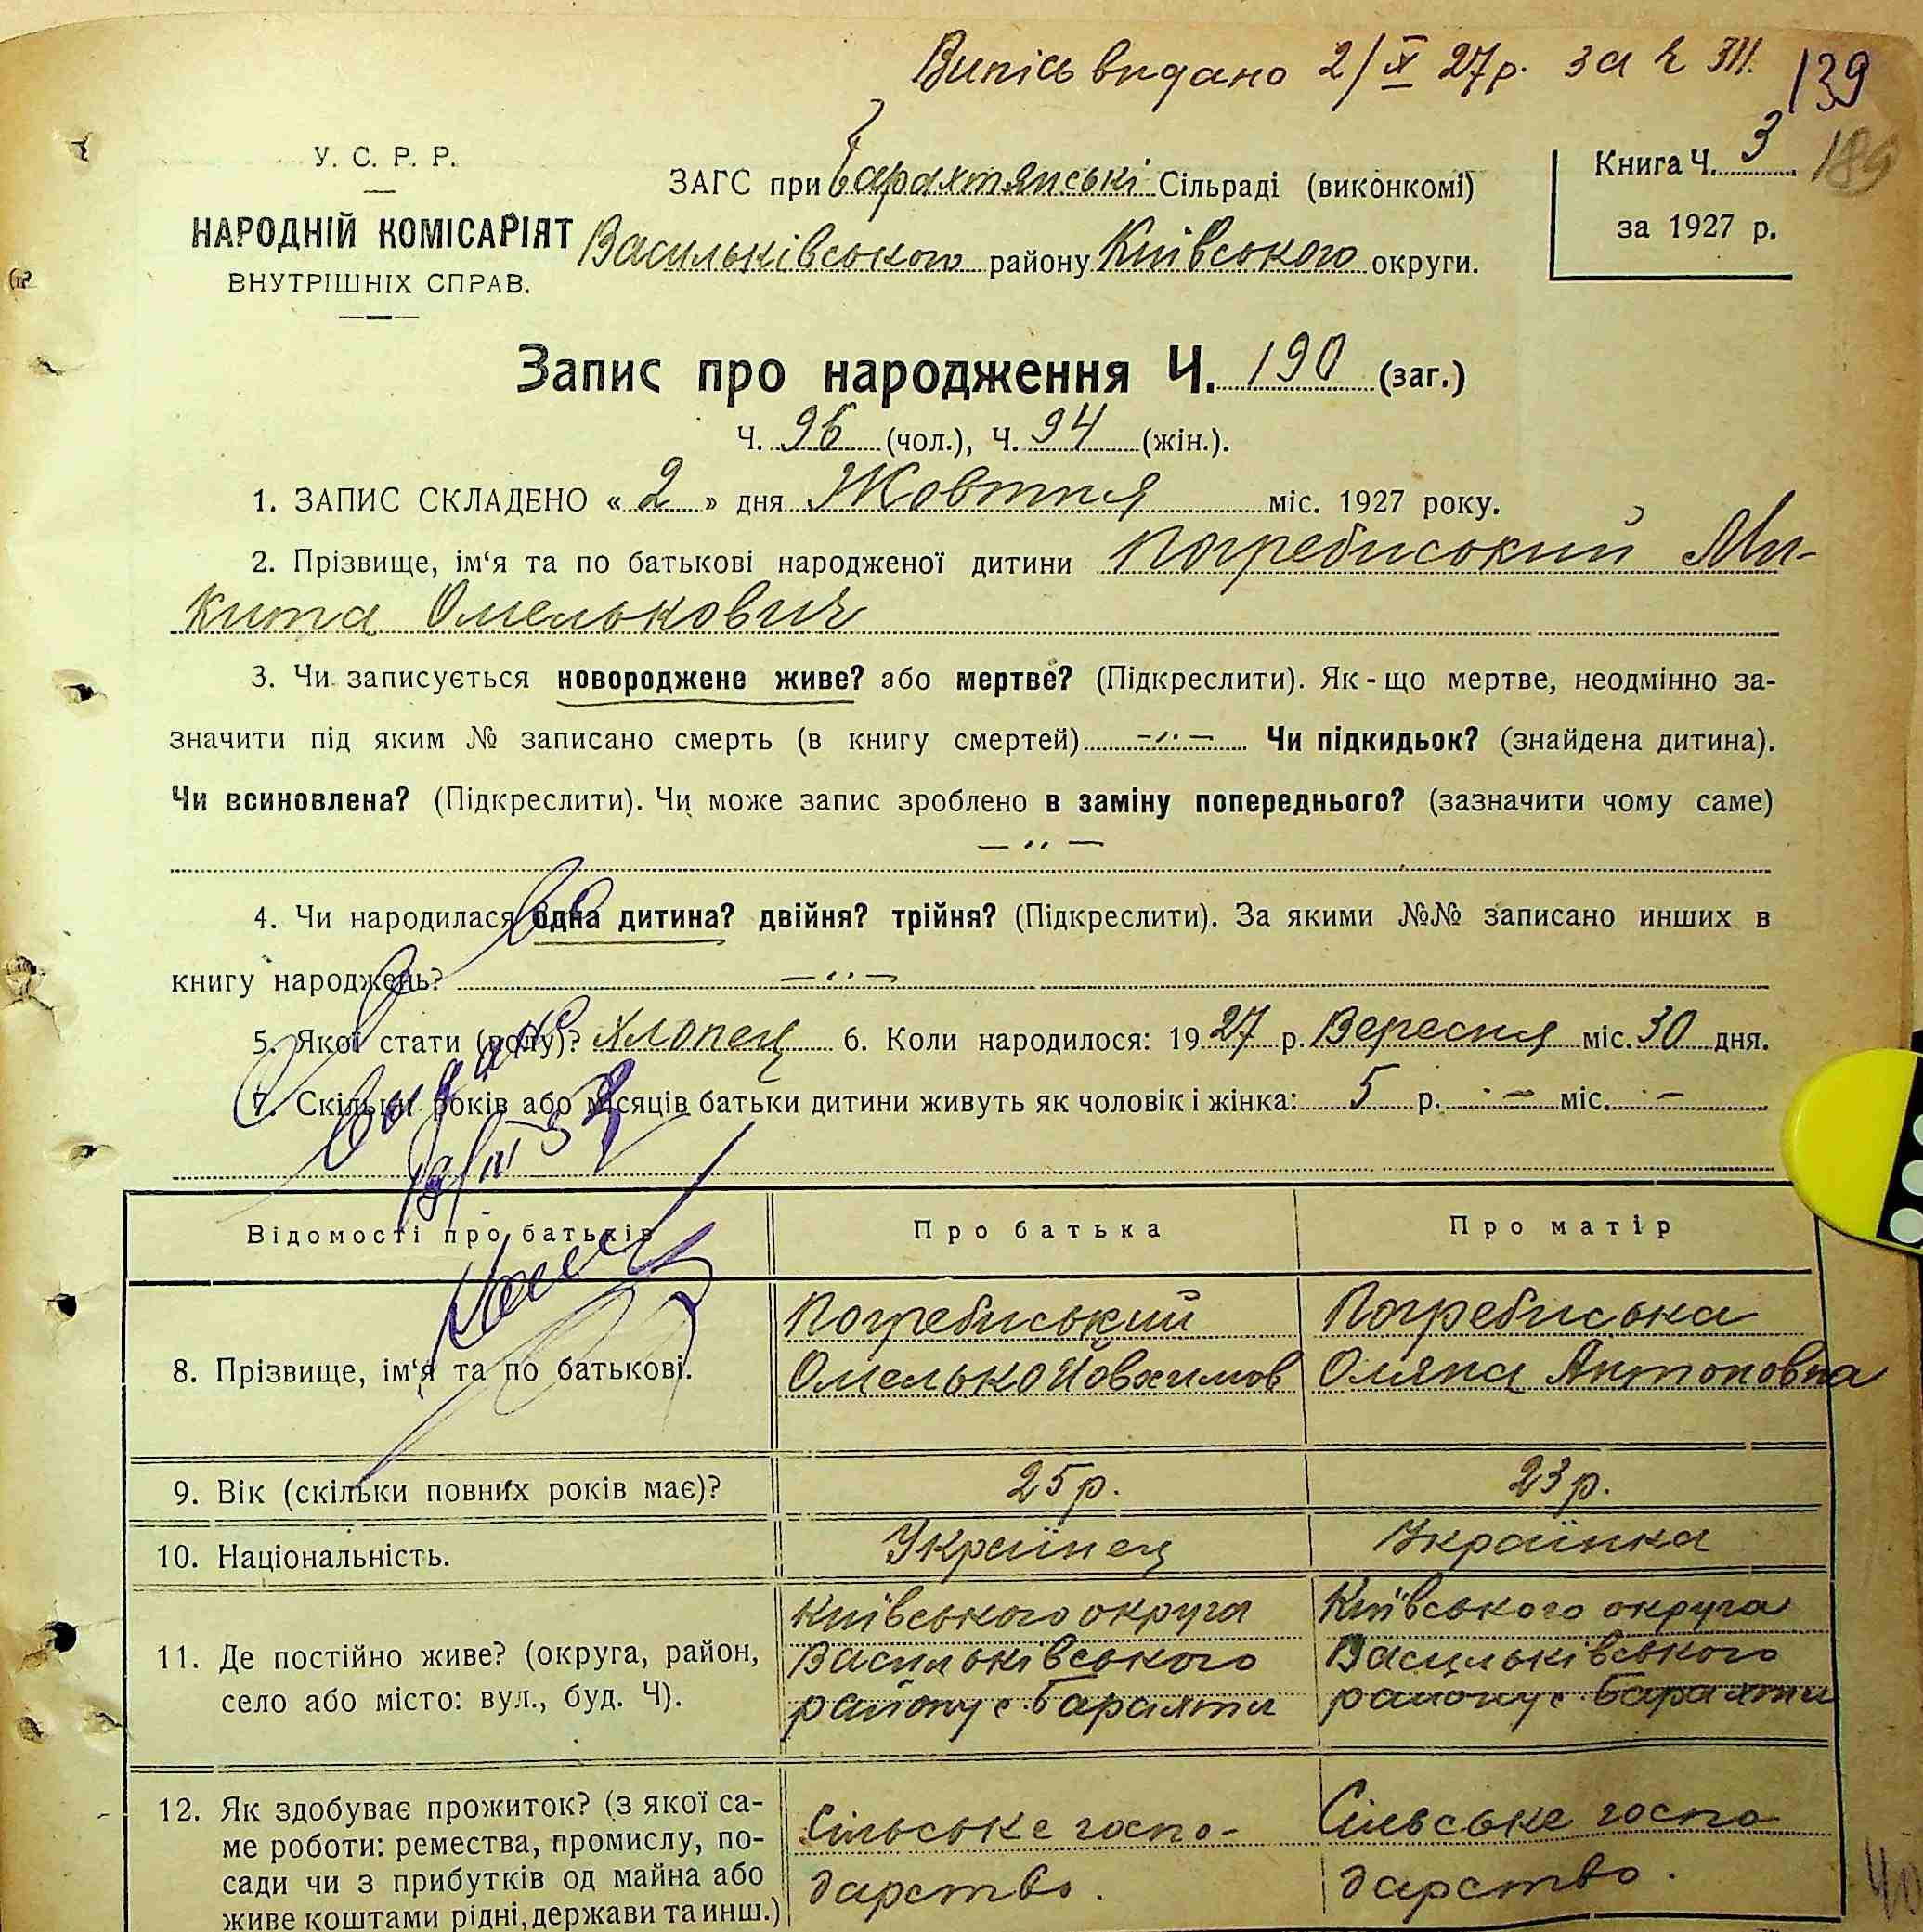 Випісь видано 2/X 27р. за 2 ЗІІ. 139
189
У. С. Р. Р.
НАРОДНІЙ КОМІСАРІЯТ
ВНУТРІШНІХ СПРАВ.
ЗАГС при Барахтянські Сільраді (виконкомі)
Васильківського району Київського округи.
Книга Ч. 3
за 1927 р.
Запис про народження Ч. 190 (заг.)
Ч. 96 (чол.), Ч. 94 (жін.).
1. ЗАПИС СКЛАДЕНО « 2 » дня Жовтня міс. 1927 року.
2. Прізвище, ім‘я та по батькові народженої дитини Погребиський Ми-
кита Омелькович
3. Чи записується новороджене живе? або мертве? (Підкреслити). Як-що мертве, неодмінно за-
значити під яким № записано смерть (в книгу смертей) -„- Чи підкидьок? (знайдена дитина).
Чи всиновлена? (Підкреслити). Чи може запис зроблено в заміну попереднього? (зазначити чому саме)
— „ —
4. Чи народилася одна дитина? двійня? трійня? (Підкреслити). За якими №№ записано инших в
книгу народжень? — „ —
5. Якої стати (роду)? Хлопец 6. Коли народилося: 1927 р. Вересня міс. 30 дня.
7. Скільки років або місяців батьки дитини живуть як чоловік і жінка: 5 р. - міс. -
Відомості про батьків Про батька Про матір
8. Прізвище, ім‘я та по батькові.
Погребиський
Омелько Йовхимов
Погребиська
Оляна Антоновна
9. Вік (скільки повних років має)? 25 р. 23 р.
10. Національність. Українец Українка
11. Де постійно живе? (округа, район,
село або місто: вул., буд. Ч).
Київського округа
Васильківського
району с. Барахти
Київського округа
Васильківського
району с. Барахти
12. Як здобуває прожиток? (з якої са-
ме роботи: ремества, промислу, по-
сади чи з прибутків од майна або
живе коштами рідні, держави та инш.)
Сільське госпо-
дарство.
Сільське госпо
дарство.